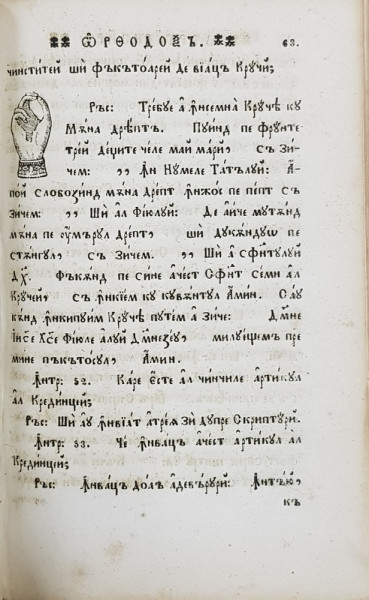 ѠРѲОДОѮЪ. 63.
чинстітей шѝ фъкътоарей де віацъ Крꙋчй;
Ръс: Требꙋе а ꙟсемна Крꙋче кꙋ
Мъна дрѣптъ. Пꙋинд пе фрꙋнте
трей деџите челе май марй съ зи-
чем: Ꙟн Нꙋмеле Татълꙋй: А-
пой слобозинд мъна дрепт ꙟжос пе пепт съ
зичем: Шѝ ал Фіюлꙋй: Де аиче мꙋтънд
мъна пе ꙋмърꙋл дрепт шѝ дꙋкъндꙋѡ пе
стънгꙋл съ зичем. Шѝ а сфнтꙋлꙋй
Дх҃. Фъкънд пе сине ачест Сфнт семн ал
Крꙋчей съ ꙟкіем кꙋ кꙋвънтꙋл Амин. Саꙋ
кънд ꙟкипꙋим Крꙋче пꙋтем а зиче: Дмне
Іи҃се Хс҃е Фіюле алꙋй Дмнезеꙋ милꙋещем пре
мине пъкътосꙋл, Амин.
Ꙟнтр: 52. Каре Есте ал чинчиле артикꙋл
ал Крединцей;
Ръс: Шѝ аꙋ ꙟвіат атреѧ зи дꙋпре Скриптꙋрй.
Ꙟнтр: 53. Че ꙟвацъ ачест артикꙋл ал
Крединцей;
Ръс: Ꙟвацъ доаъ адевърꙋрй: Ꙟнтъю
къ